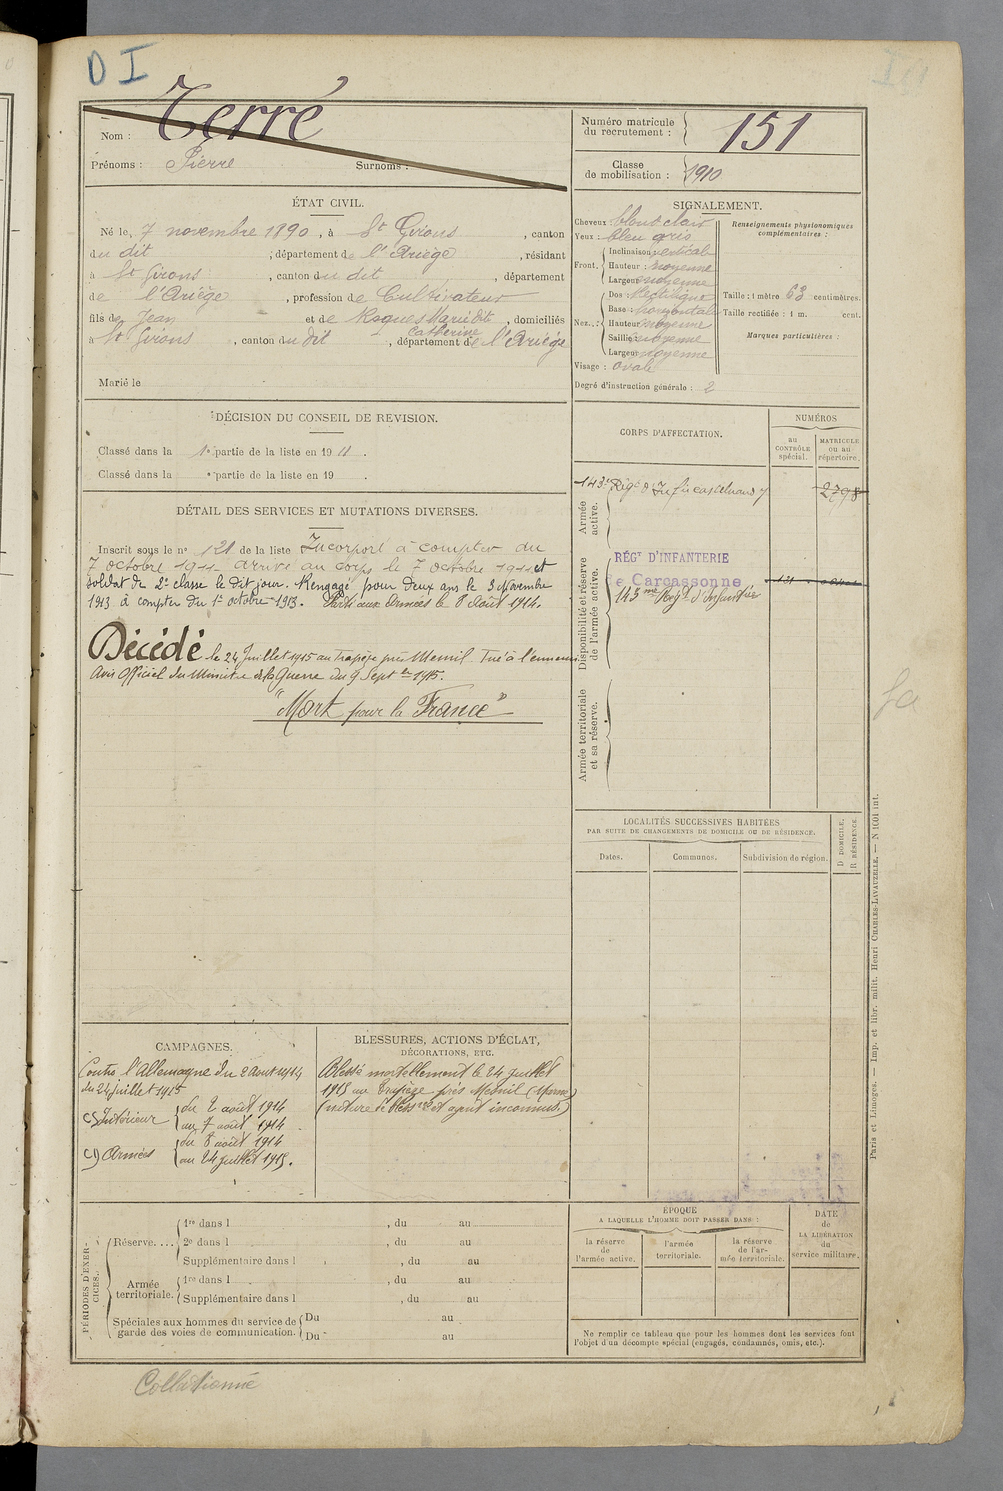 D I
Nom : Terré
Prénoms : Pierre Surnoms :
Numéro matricule
du recrutement : 151
Classe
de mobilisation : 1910
ÉTAT CIVIL.
Né le, 7 novembre 1890, à St Girons, canton
du dit, département de l'Ariège, résidant
à St Girons, canton du dit, département
de l'Ariège, profession de Cultivateur
fils de Jean et de Roques Marie dit, domiciliés
Catherine
à St Girons, canton du dit, département de l'Ariège
Marié le
SIGNALEMENT.
Cheveux blond clair
Yeux : bleu gris
Front. Inclinaison : verticale
Hauteur : moyenne
Largeur moyenne
Nez. : Dos : Rectiligne
Base : horizontale
Hauteur moyenne
Saillie : moyenne
Largeur moyenne
Visage : ovale
Degré d'instruction générale : 2
Renseignements physionomiques
complémentaires :
Taille : 1 mètre 63 centimètres.
Taille rectifiée : 1 m. cent.
Marques particulières :
DÉCISION DU CONSEIL DE REVISION.
Classé dans la 1e partie de la liste en 1911.
Classé dans la e partie de la liste en 19 .
DÉTAIL DES SERVICES ET MUTATIONS DIVERSES.
Inscrit sous le no 121 de la liste Incorporé à compter du
7 octobre 1911 arrivé au corps le 7 octobre 1911 et
soldat de 2e classe le dit jour. Rengagé pour deux ans le 3 Novembre
1913 à compter du 1er octobre 1913. Parti aux Armées le 8 Août 1914.
Décédé le 24 Juillet 1915 au Trapèze près Mesnil. Tué à l'ennemi.
Avis Officiel du Ministre de la Guerre du 9 Sept bre 1915.
"Mort pour la France"
CORPS D'AFFECTATION.
NUMÉROS
au
CONTRÔLE
spécial.
MATRICULE
ou au
répertoire.
Armée
active.
143e Rég t d'Inf ie Castelnaudy 2798
Disponibilité et réserve
de l'armée active.
RÉGT D'INFANTERIE
de Carcassonne
143 me Reg t d'Infanterie
Armée territoriale
et sa réserve.
LOCALITÉS SUCCESSIVES HABITÉES
PAR SUITE DE CHANGEMENTS DE DOMICILE OU DE RÉSIDENCE.
Dates. Communes. Subdivision de région.
D DOMICILE.
R RÉSIDENCE.
CAMPAGNES.
Contre l'Allemagne du 2 aout 1914
au 24 juillet 1915
C) Intérieur du 2 août 1914
au 7 août 1914
C) Armées du 8 août 1914
au 24 juillet 1915.
BLESSURES, ACTIONS D'ÉCLAT,
DÉCORATIONS, ETC.
Blessé mortellement le 24 juillet
1915 au Trapèze près Mesnil (Marne)
(nature de bless re et agent inconnus.)
PÉRIODES D'EXERCICES.
Réserve.... 1re dans l , du au
2e dans l , du au
Supplémentaire dans l , du au
Armée
territoriale. 1re dans l , du au
Supplémentaire dans l , du au
Spéciales aux hommes du service de
garde des voies de communication. Du au
Du au
ÉPOQUE
A LAQUELLE L'HOMME DOIT PASSER DANS :
la réserve
de
l'armée active.
l'armée
territoriale.
la réserve
de l'armée territoriale.
DATE
de
LA LIBÉRATION
du
service militaire.
Ne remplir ce tableau que pour les hommes dont les services font
l'objet d'un décompte spécial (engagés, condamnés, omis, etc.).
Collationné
Paris et Limoges. — Imp. et libr. milit. Henri CHARLES-LAVAUZELLE. — N 1601 int.